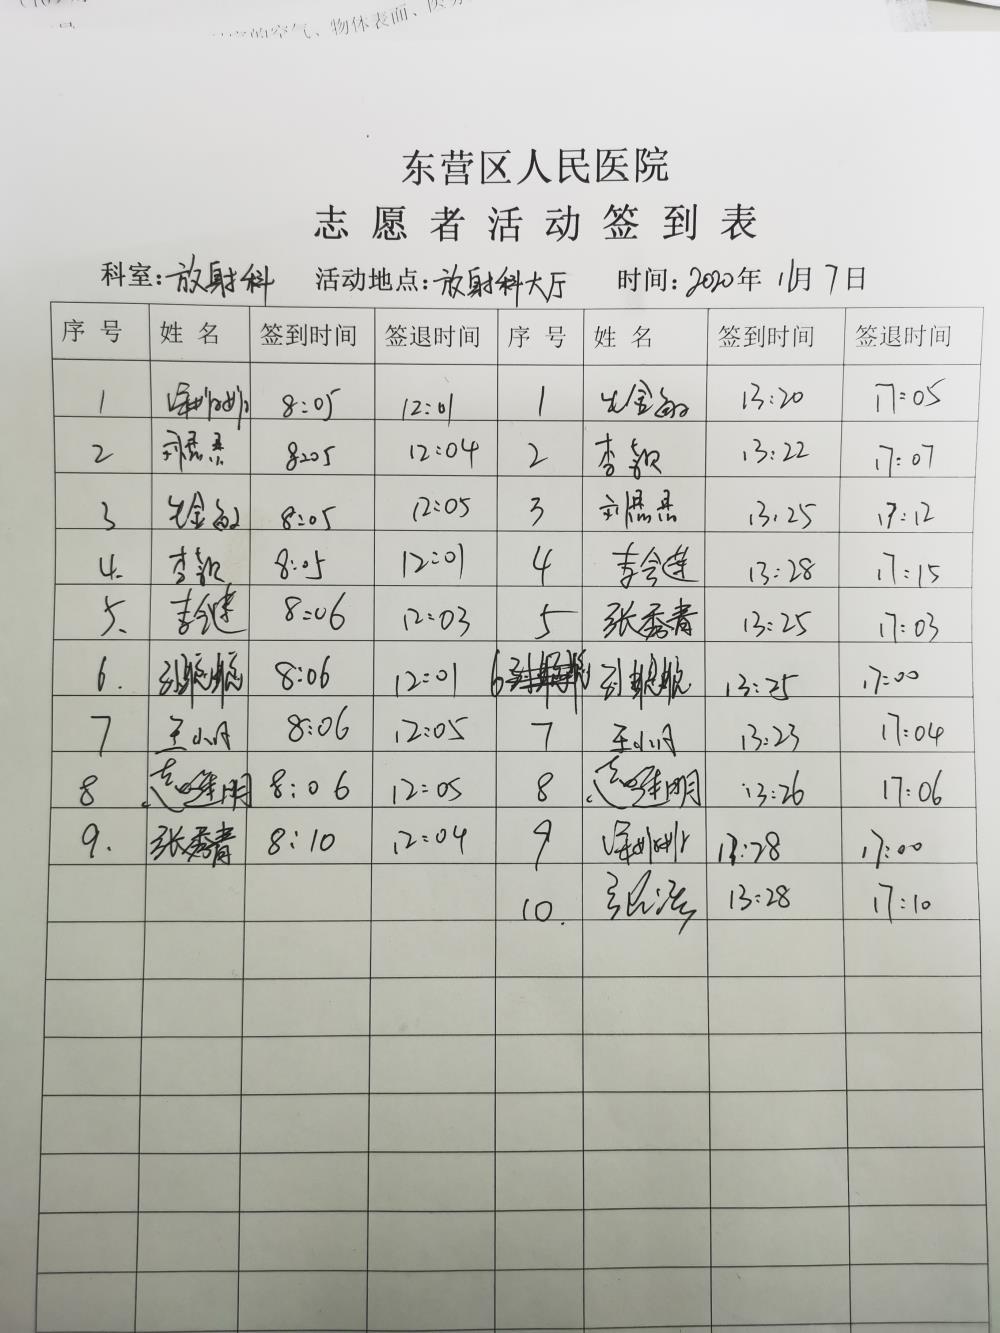 的空气、物体表面、医务
东营区人民医院
志愿者活动签到表
科室:放射科 活动地点:放射科大厅 时间:2020年11月7日
序号 姓名 签到时间 签退时间 序号 姓名 签到时间 签退时间
1 8:05 12:01 1 13:20 17:05
2 刘磊磊 8:05 12:04 2 李颖 13:22 17:07
3 8:05 12:05 3 刘磊磊 13:25 17:12
4. 李颖 8:05 12:01 4 李会莲 13:28 17:15
5、 李会莲 8:06 12:03 5 张秀青 13:25 17:03
6. 8:06 12:01 6 13:25 17:00
7 王小月 8:06 12:05 7 王小月 13:23 17:04
8 8:06 12:05 8 13:26 17:06
9. 张秀青 8:10 12:04 9 13:28 17:00
10. 13:28 17:10